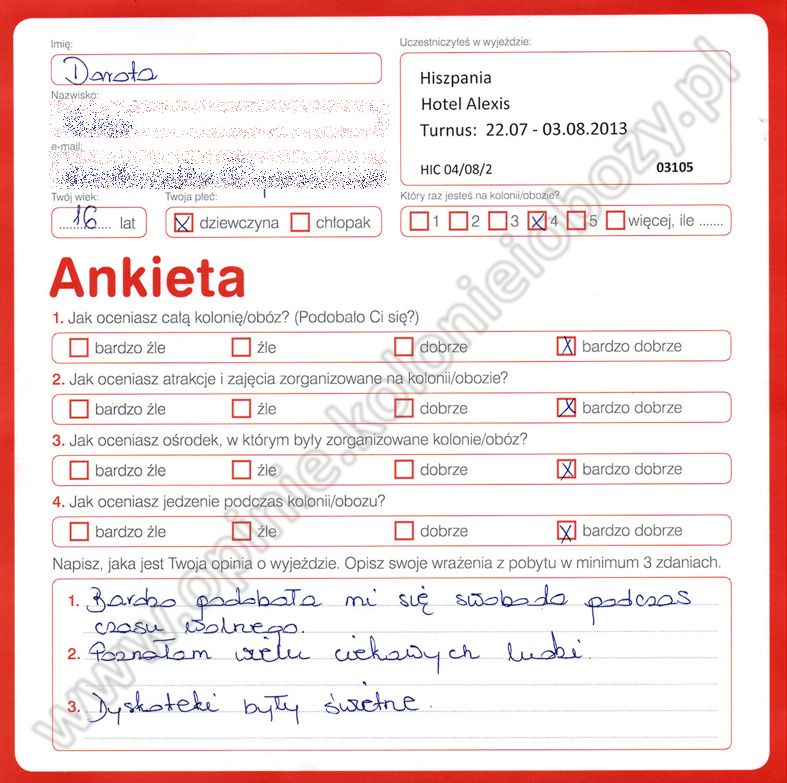 Imię:
Dorota
Nazwisko:
e-mail:
Twój wiek:
16 lat
Twoja płeć:
dziewczyna chłopak
Uczestniczyłeś w wyjeździe:
Hiszpania
Hotel Alexis
Turnus: 22.07 - 03.08.2013
HIC 04/08/2 03105
Który raz jesteś na kolonii/obozie?
1 2 3 4 5 więcej, ile .......
Ankieta
1. Jak oceniasz całą kolonię/obóz? (Podobało Ci się?)
bardzo źle źle dobrze bardzo dobrze
2. Jak oceniasz atrakcje i zajęcia zorganizowane na kolonii/obozie?
bardzo źle źle dobrze bardzo dobrze
3. Jak oceniasz ośrodek, w którym były zorganizowane kolonie/obóz?
bardzo źle źle dobrze bardzo dobrze
4. Jak oceniasz jedzenie podczas kolonii/obozu?
bardzo źle źle dobrze bardzo dobrze
Napisz, jaka jest Twoja opinia o wyjeździe. Opisz swoje wrażenia z pobytu w minimum 3 zdaniach.
1. Bardzo podobała mi się swoboda podczas
czasu wolnego.
2. Poznałam wielu ciekawych ludzi.
3. Dyskoteki były świetne.
www.opinie.kolonieiobozy.pl